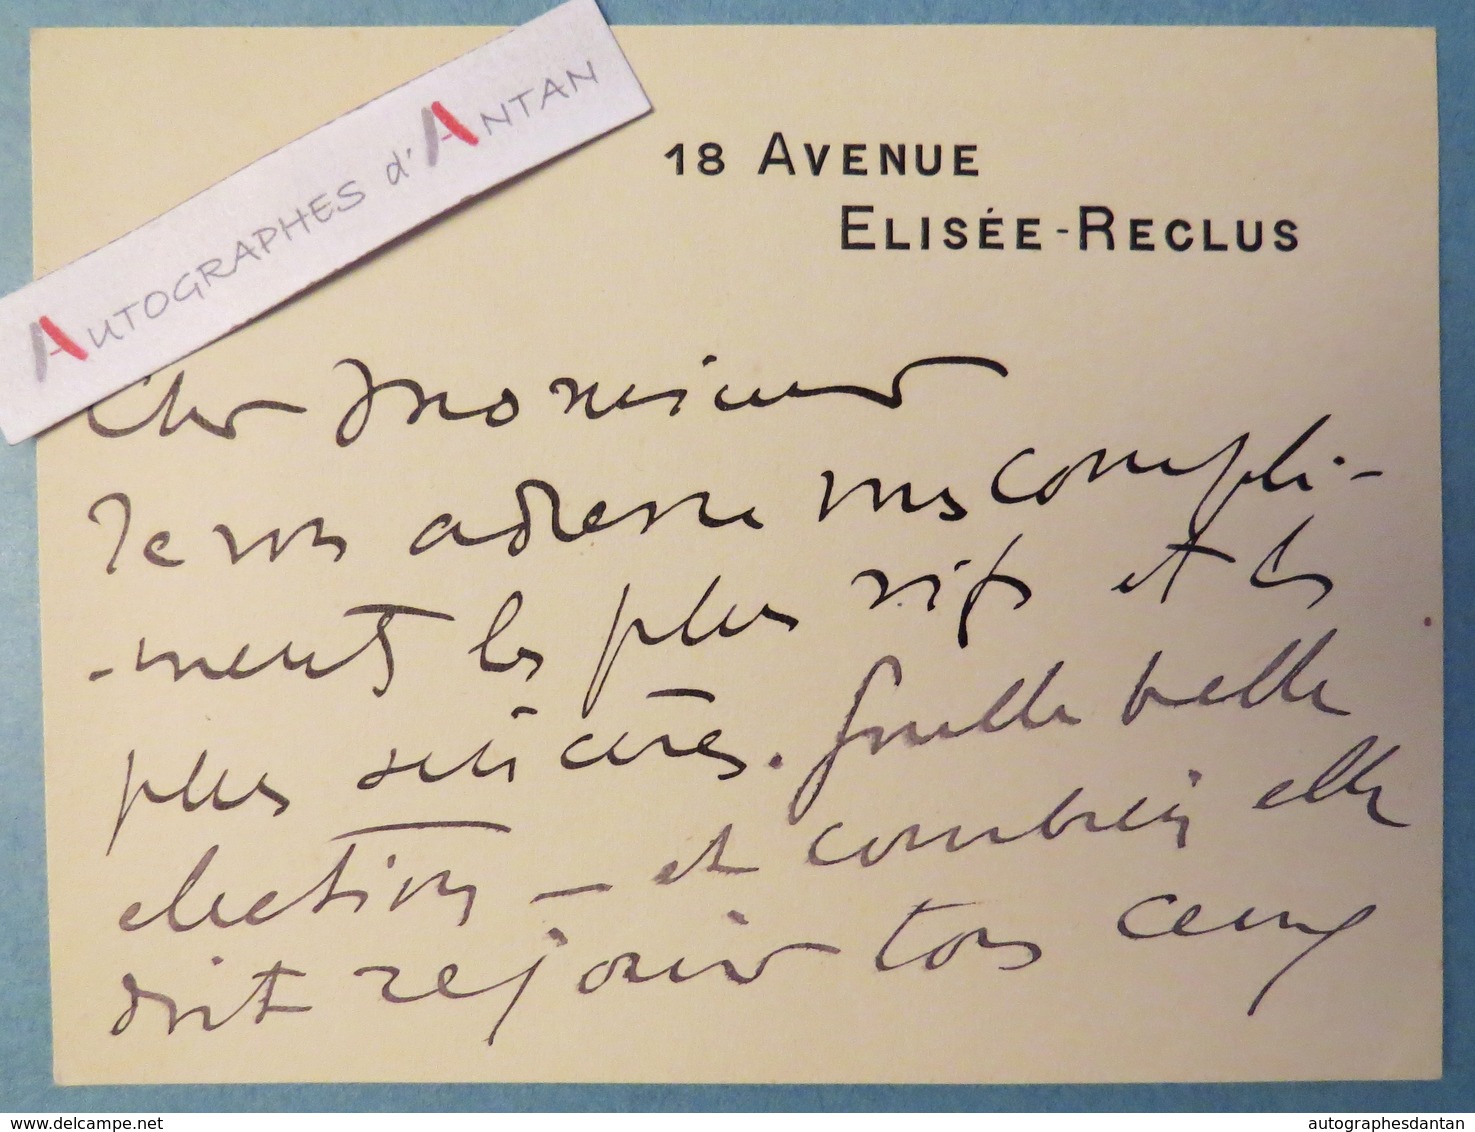 AUTOGRAPHES d'ANTAN
18 AVENUE
ELISÉE-RECLUS
Cher Monsieur
Je vous adresse mes compli-
-ments les plus vifs et les
plus sincères. Quelle belle
election — et combien elle
doit rejouir tous ceux
autographesdantan
autographesdantan.com